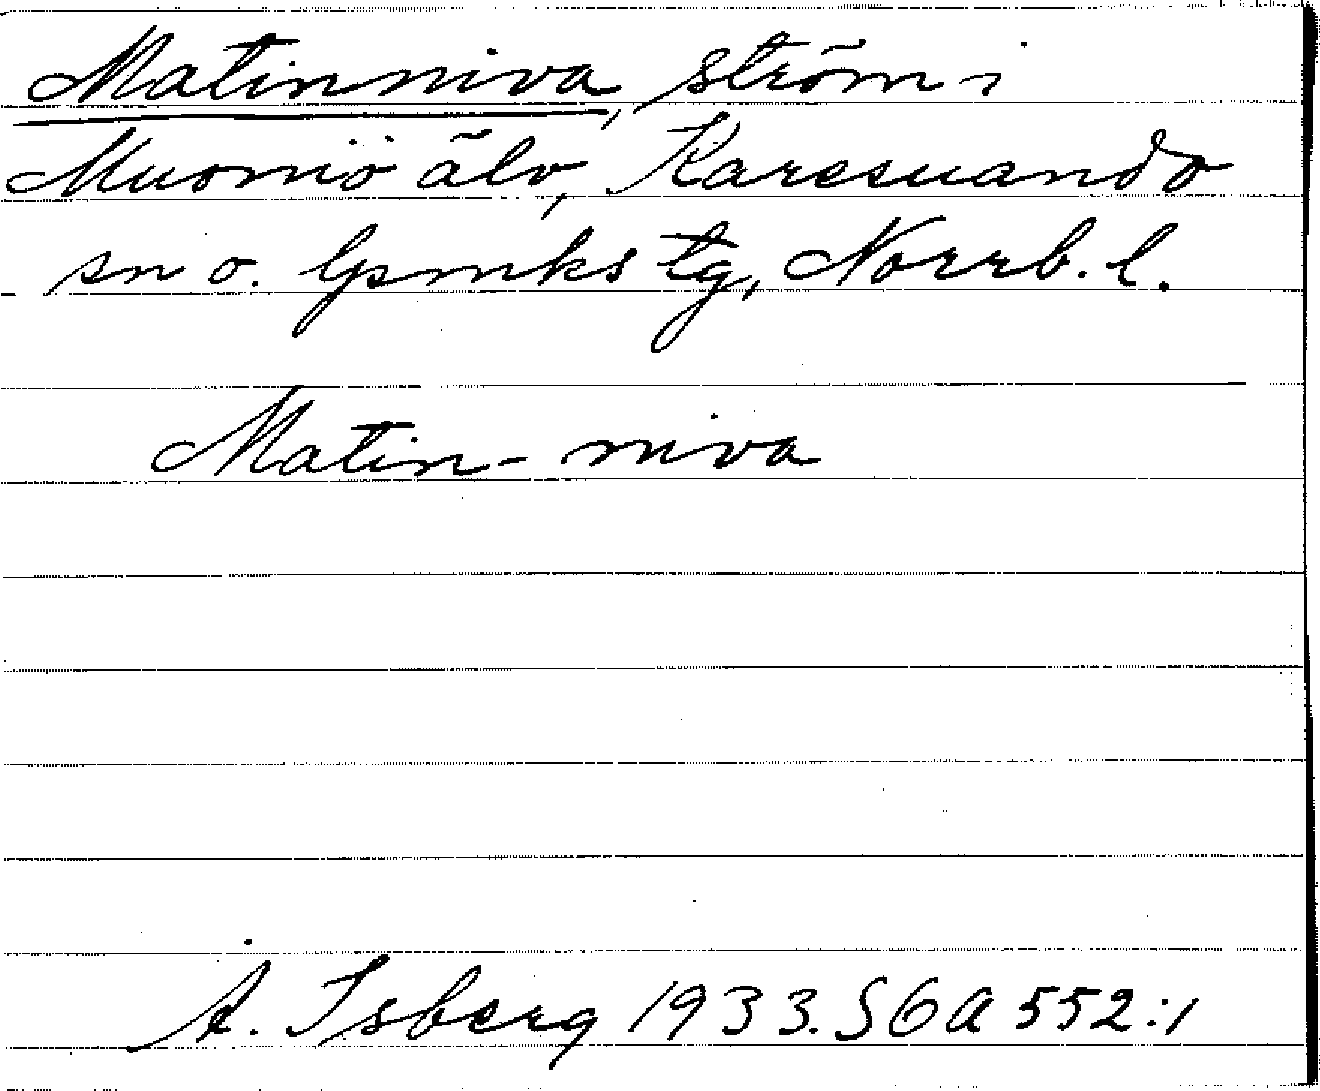 Matinniva, ström i
Muonio älv, Karesuando
sn o. lpmks tg, Norrb. l.
Matin-niva
Å. Isberg 1933. SOA 552:1